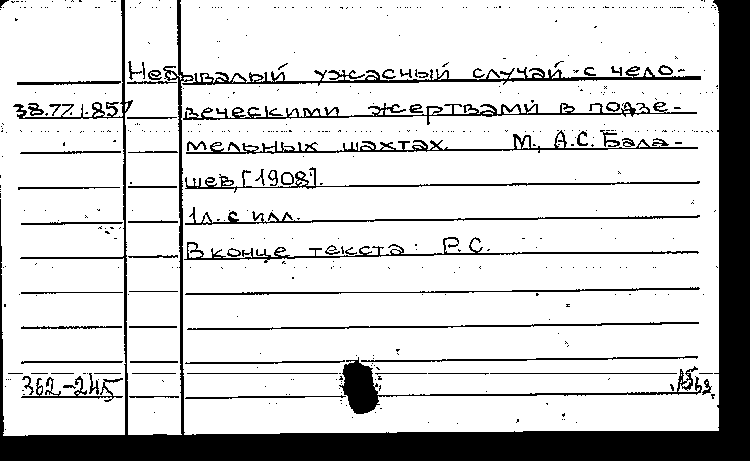 Небывалый ужасный случай с чело-
38.77.1.857 веческими жертвами в подзе-
мельных шахтах. М., А.С. Бала-
шев, [1908].
1л. с илл.
В конце текста: Р.С.
362-245